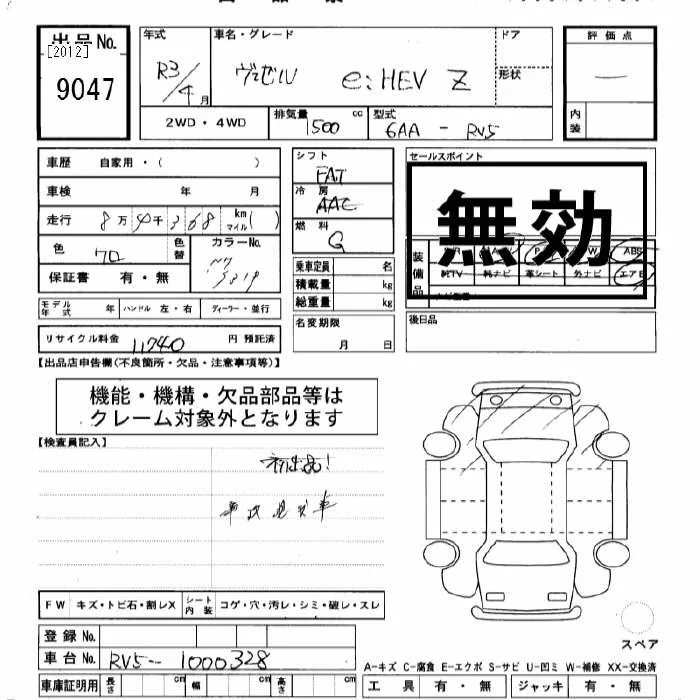 出品No.
[2012]
9047
年式
R3/4月
車名・グレード
ヴェゼル e:HEV Z
ドア
形状
評価点
内装
2WD・4WD
排気量 1500 cc
型式 6AA - RV5
車歴 自家用・( )
車検 年 月
走行 8万 4千 368 km マイル ( )
色 クロ
色替
カラーNo.
保証書 有・無
モデル年式 年 ハンドル 左・右 ディーラー・並行
リサイクル料金 11740 円 預託済
シフト FAT
冷房 AAC
燃料 G
乗車定員 名
積載量 kg
総重量 kg
名変期限
月 日
セールスポイント
無効
装備品
ABS
純TV 純ナビ 革シート 外ナビ エアB
後日品
【出品店申告欄(不良箇所・欠品・注意事項等)】
機能・機構・欠品部品等は
クレーム対象外となります
【検査員記入】
初出品!
FW キズ・トビ石・割レX シート内装 コゲ・穴・汚レ・シミ・破レ・スレ
登録No.
車台No. RV5-1000328
車庫証明用 長さ cm 幅 cm 高さ cm
スペア
A-キズ C-腐食 E-エクボ S-サビ U-凹ミ W-補修 XX-交換済
工具 有・無 ジャッキ 有・無